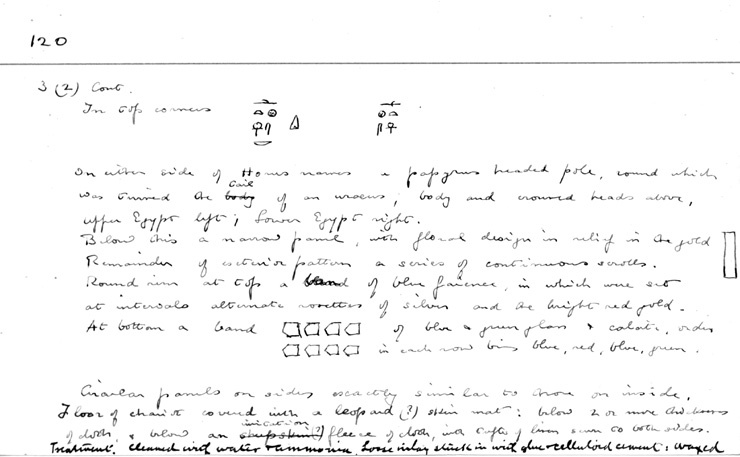 120
3 (2) Cont.
In top corners
On either side of Horus names a papyrus headed pole, round which
was twined the tail body of an uraeus, body and crowned heads above,
upper Egypt left; Lower Egypt right.
Below this a narrow panel, with floral design in relief in the gold
Remainder of exterior pattern a series of continuous scrolls.
Round rim at top a band of blue faience, in which were set
at intervals alternate rosettes of silver and the bright red gold.
At bottom a band of blue & green glass & calcite, order
in each row being blue, red, blue, green.
Circular panels on sides exactly similar to those on inside.
Floor of chariot covered with a leopard (?) skin mat: below 2 or more thicknesses
of cloth, & below an imitation sheepskin(?) fleece of cloth, with tufts of linen sewn to both sides.
Treatment. Cleaned with water & ammonia Loose inlay stuck in with glue & celluloid cement: waxed